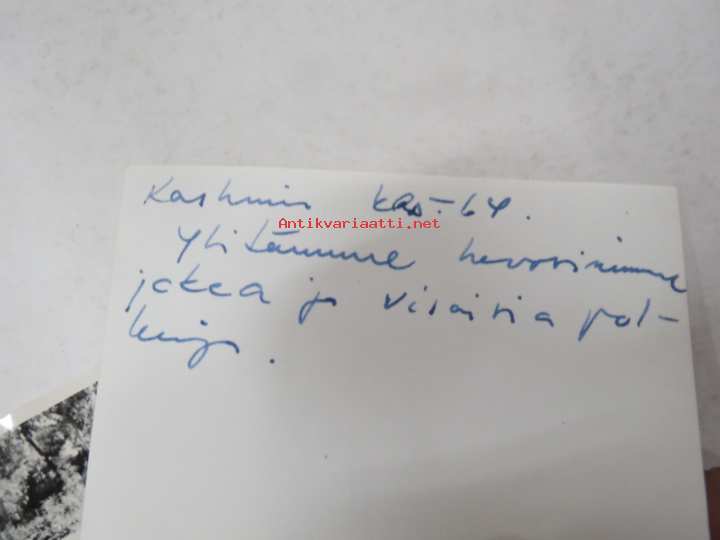 Kashmir kes-64.
Antikvariaatti.net
Ylitämme hevosinemme
jokea ja visaisia pol-
kuja.